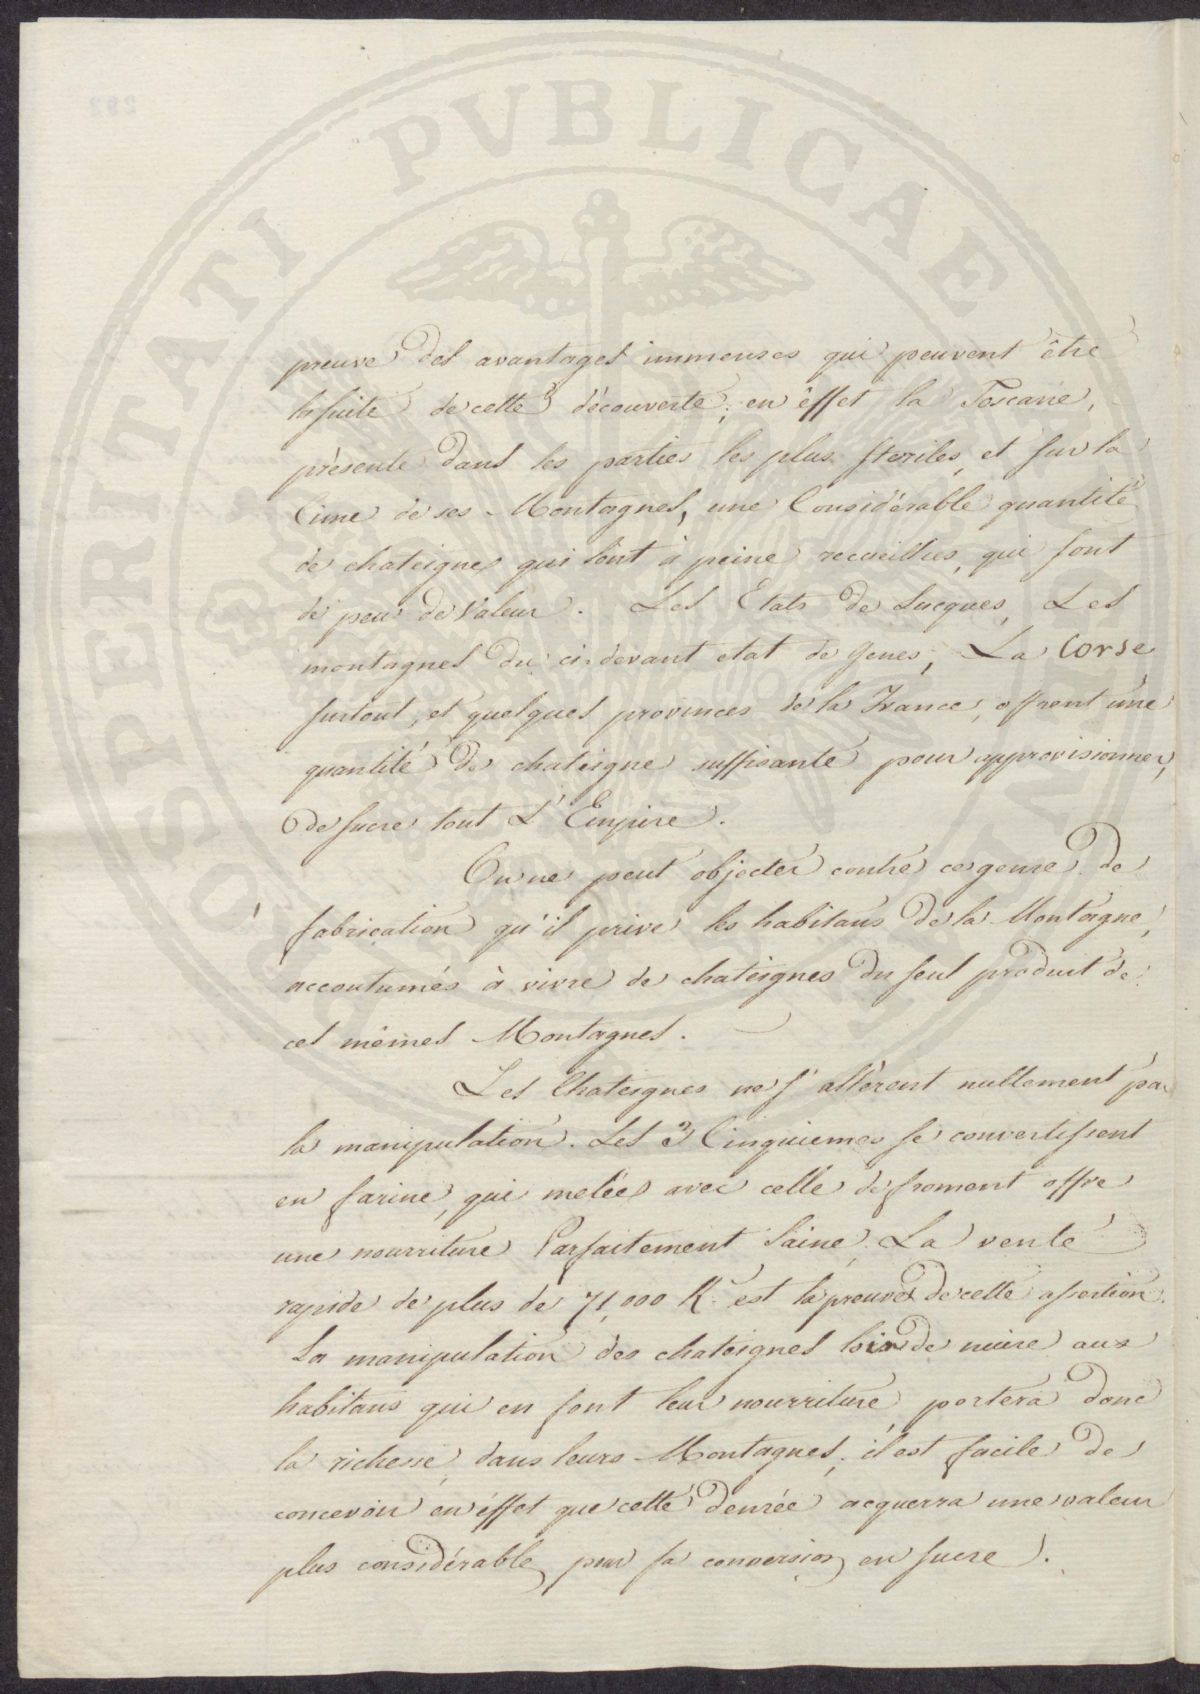 PROSPERITATI PVBLICAE
preuve des avantages immenses qui peuvent être
la suite de cette découverte; en éffet la Toscane,
présente dans les parties les plus steriles, et sur la
Cime de ses Montagnes, une Considérable quantité
de chateignes qui sont à peine recueillies, qui sont
de peu de valeur. Les Etats de Lucques, Les
montagnes du ci-devant etat de Genes, La Corse
surtout, et quelques provinces de la France, offrent une
quantité de chateigne suffisante pour approvisionner,
de sucre tout L'Empire.
On ne peut objecter contre ce genre de
fabrication qu'il prive les habitans de la Montagne,
accoutumés à vivre de chateignes du seul produit de
ces mêmes Montagnes.
Les Chateignes ne s'altèrent nullement par
la manipulation. Les 3 Cinquiemes se convertissent
en farine, qui melée avec celle de froment offre
une nourriture Parfaitement Saine, La vente
rapide de plus de 71,000 K est la preuve de cette assertion.
La manipulation des chateignes loin de nuire aux
habitans qui en font leur nourriture, portera donc
la richesse, dans leurs Montagnes, il est facile de
concevoir en éffet que cette denrée acquerra une valeur
plus considérable, par sa conversion en sucre.